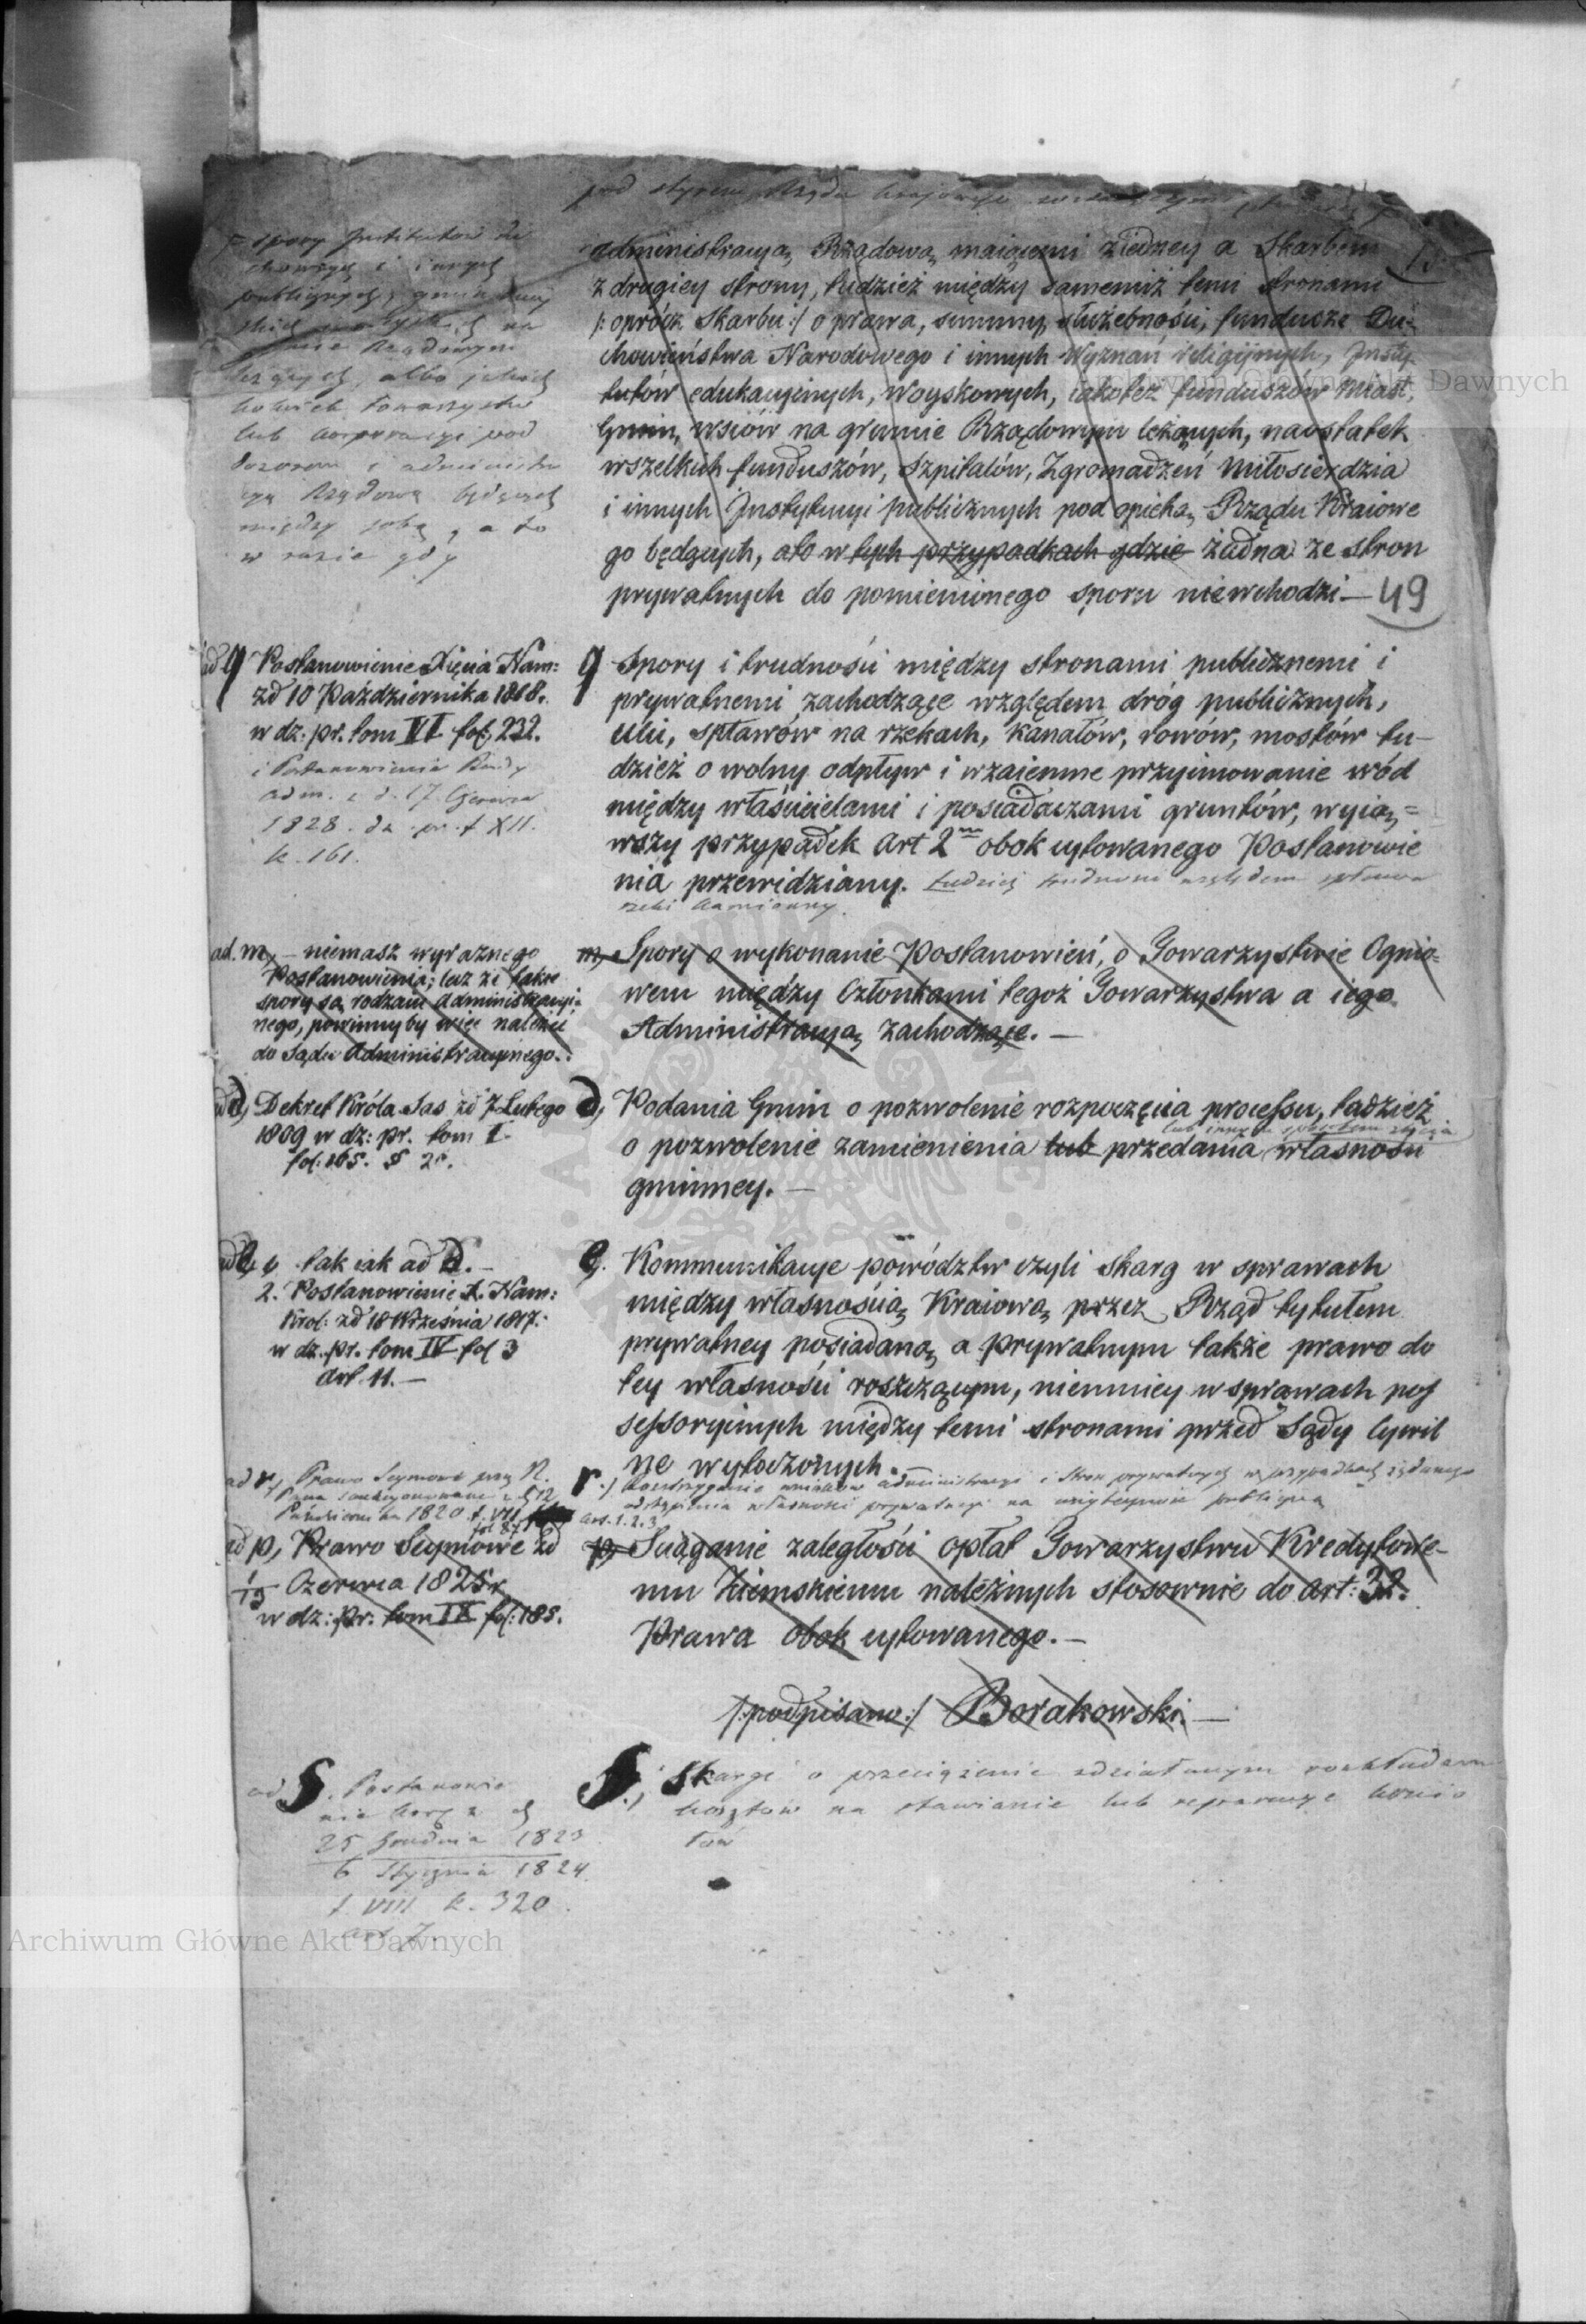 pod Rządu
administracyą Rządową maiącemi ziedney a Skarbem
z drugiey strony, tudzież między samemiż temi stronami
/: oprócz Skarbu :/ o prawa, summy, służebności, fundusze Du-
chowieństwa Narodowego i innych Wyznań religijnych, Insty
tutów edukacyinych, Woyskowych, iakoteż funduszów Miast,
Gmin, wsiów na gruncie Rządowym leżących, naostatek
wszelkich funduszów, Szpitalów, Zgromadzeń Miłosierdzia
i innych Instytucyi publicznych pod opieką Rządu Kraiowe
go będących, a to w tych przypadkach gdzie żadna ze stron
prywatnych do pomienionego sporu niewchodzi —
49
spory Institutów du
chownych i innych
publicznych, gmin
na
gruncie Rządowym
leżących, albo jakich
kolwiek towarzystw
lub korporacyi pod
dozorem i administra
cyą Rządową będących
między sobą, a to
w razie gdy
ad q Postanowienie Xięcia Nam:
zd 10 Października 1818.
w dz: pr. tom VI fol: 232.
i Postanowienia Rady
adm. z d. 17 Czerwca
1828. dz. pr. t. XII.
k. 161.
q Spory i trudności między stronami publicznemi i
prywatnemi zachodzące względem dróg publicznych,
Ulic, spławów na rzekach, kanałów, rowów, mostów tu-
dzież o wolny odpływ i wzaiemne przyimowanie wód
między właścicielami i posiadaczami gruntów, wyią=
wszy przypadek Art 2m obok cytowanego Postanowie
nia przewidziany. tudzież trudności względem spławu
rzeki Kamionny.
ad. m, — niemasz wyraznego
Postanowienia; lecz że takie
spory są rodzaiu Administracyi-
nego, powinnyby więc należeć
do Sądu Administracyinego.
m, Spory o wykonanie Postanowień, o Towarzystwie Ognio-
wem między Członkami tegoż Towarzystwa a iego
Administracyą zachodzące. —
ad d, Dekret Króla Sas zd 7 Lutego
1809 w dz: pr. tom I.
fol: 165. § 20.
d, Podania Gmin o pozwolenie rozpoczęcia processu, tudzież
lub innym sposobem zbycia
o pozwolenie zamienienia lub przedania własności
gminney. —
ad e, 1, tak iak ad d. —
2. Postanowienie X. Nam:
Król: zd 18 Września 1817.
w dz. pr. tom IV fol 3
Art. 11. —
e. Kommunikacye powództw czyli skarg w sprawach
między własnością Kraiową przez Rząd tytułem
prywatney posiadaną a prywatnym także prawo do
tey własności roszczącym, niemniey w sprawach pos
sessoryinych między temi stronami przed Sądy Cywil
ne wytoczonych. —
ad r, Prawo Seymowe przy N.
Pana sankcyonowane
Października 1820. t. VII
fol 87
r./ Rozstrzyganie wniosków administracyi i stron prywatnych w przypadkach żądanego
odstąpienia własności prywatney na użytek publiczny
Art. 1. 2. 3.
ad p, Prawo Seymowe zd
1/13 Czerwca 1825 r.
w dz: pr: tom IX fol: 185.
p, Sciąganie zaległości opłat Towarzystwu Kredytowe-
mu Ziemskiemu należnych stosownie do Art: 32.
Prawa obok cytowanego. —
/:podpisano:/ Borakowski. —
ad S. Postanowie
nie
25 Grudnia 1823
6 Stycznia 1824.
t. VIII k. 320.
art. 7.
S./ Skargi o przeciążenie zdziałanym rozkładem
kosztów na stawianie lub reparacye kościo
łów
Archiwum Główne Akt Dawnych
Archiwum Główne Akt Dawnych